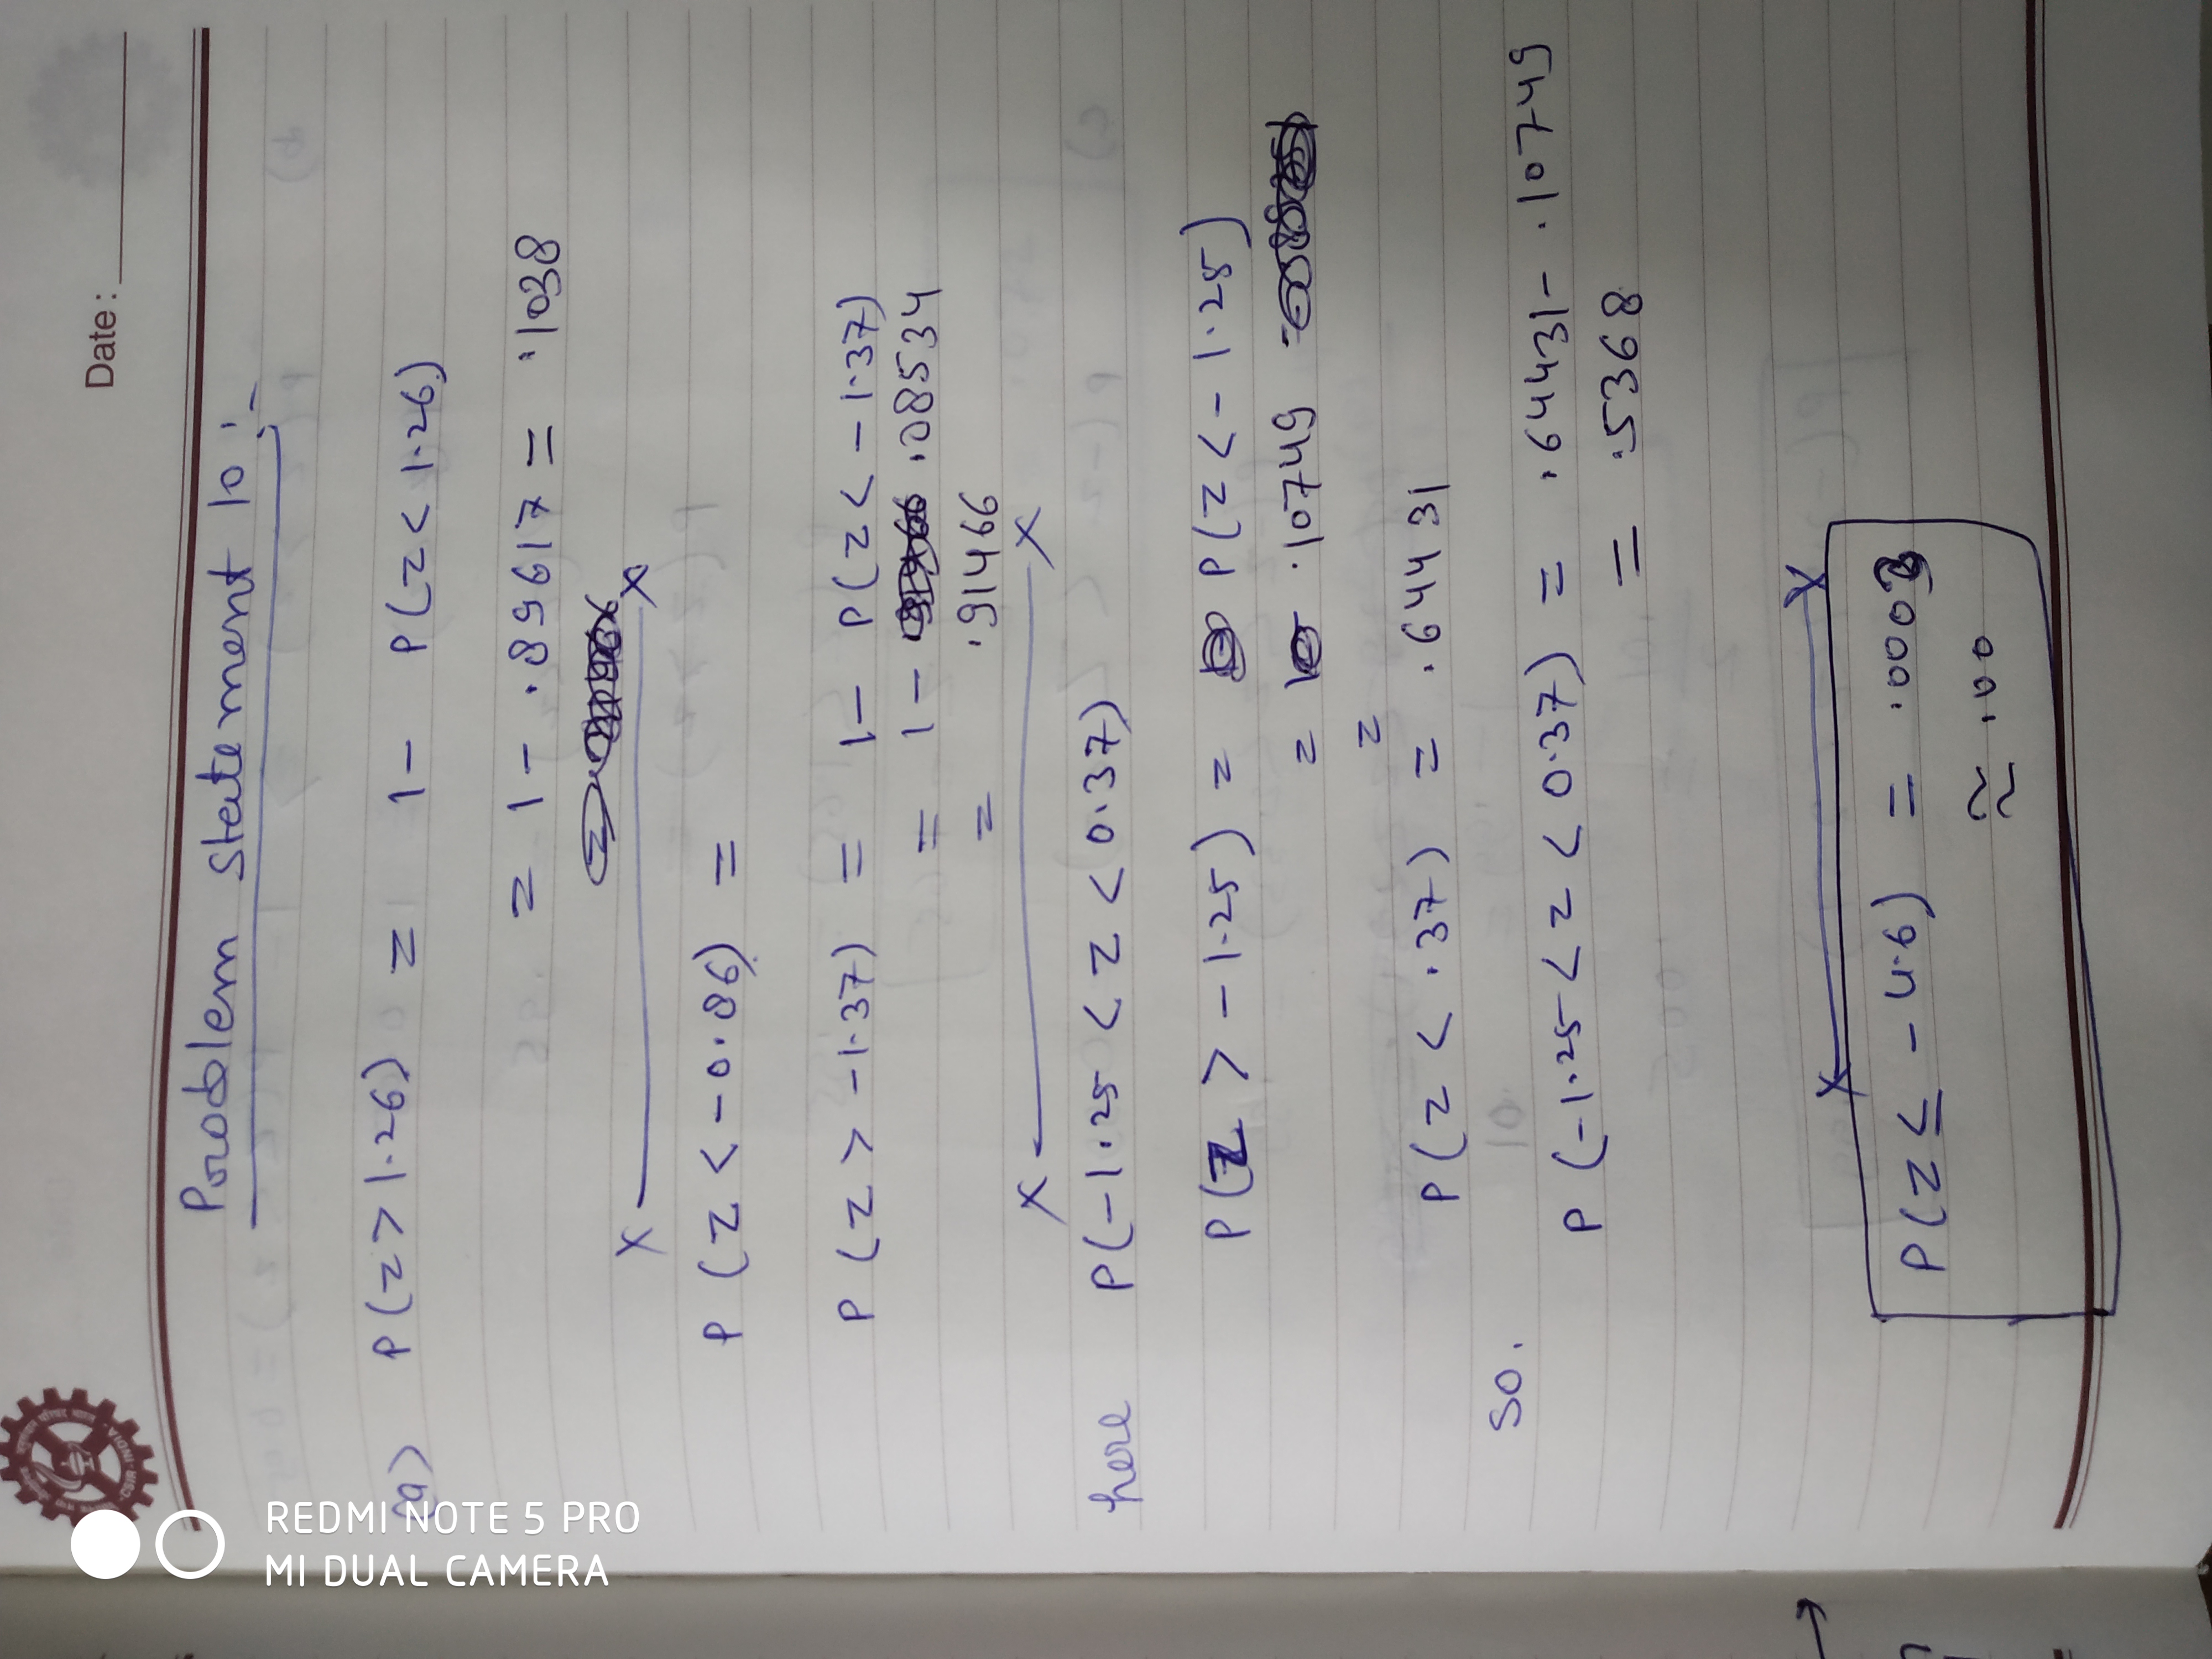 Date:
Problem Statement 10:-
(a) P(z>1.26) = 1 - P(z<1.26)
= 1 - .89617 = .1038
P(z<-0.86) =
P(z>-1.37) = 1- P(z<-1.37)
= 1- .08534
= .91466
here P(-1.25<z<0.37)
P(z > -1.25) = P(z<-1.25)
= .10749
=
P(z < .37) = .64431
So. P(-1.25<z<0.37) = .64431 - .10749
= .5368
P(z ≤ -4.6) = .000
≈ 0.0
REDMI NOTE 5 PRO
MI DUAL CAMERA